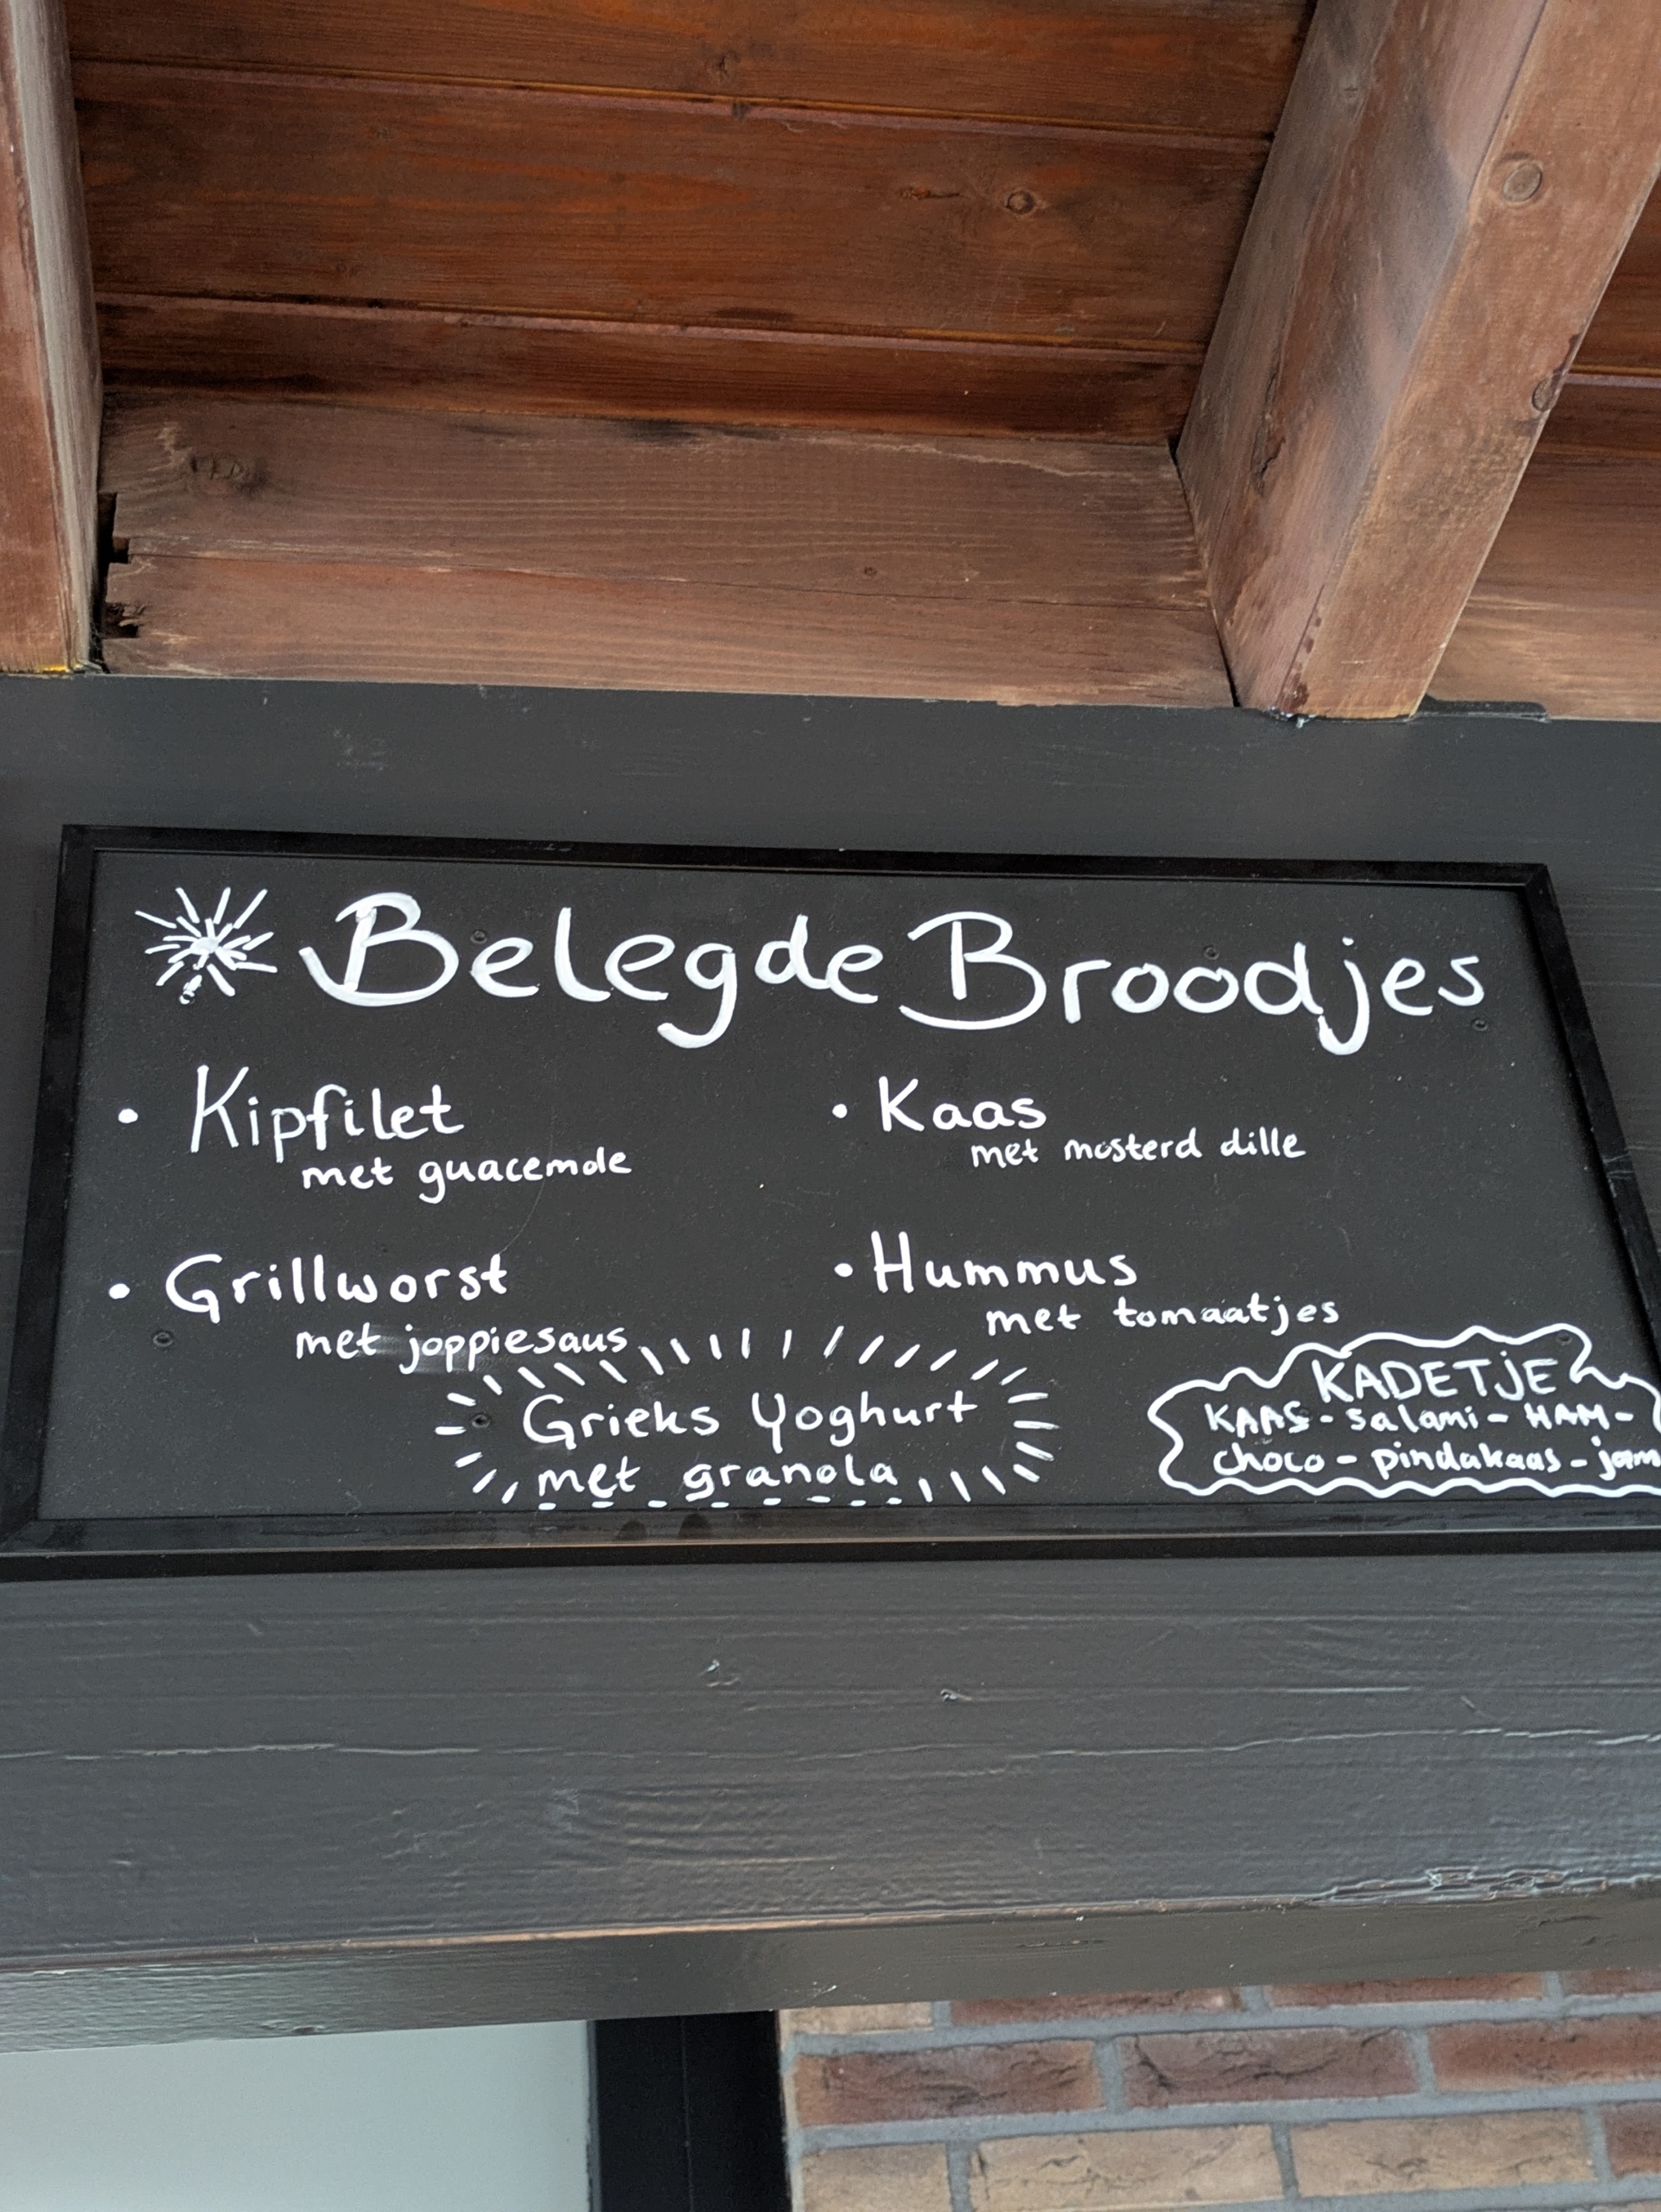 Belegde Broodjes
• Kipfilet
met guacemole
• Kaas
met mosterd dille
• Grillworst
met joppiesaus
• Hummus
met tomaatjes
Grieks Yoghurt
met granola
KADETJE
KAAS - salami - HAM -
choco - pindakaas - jam